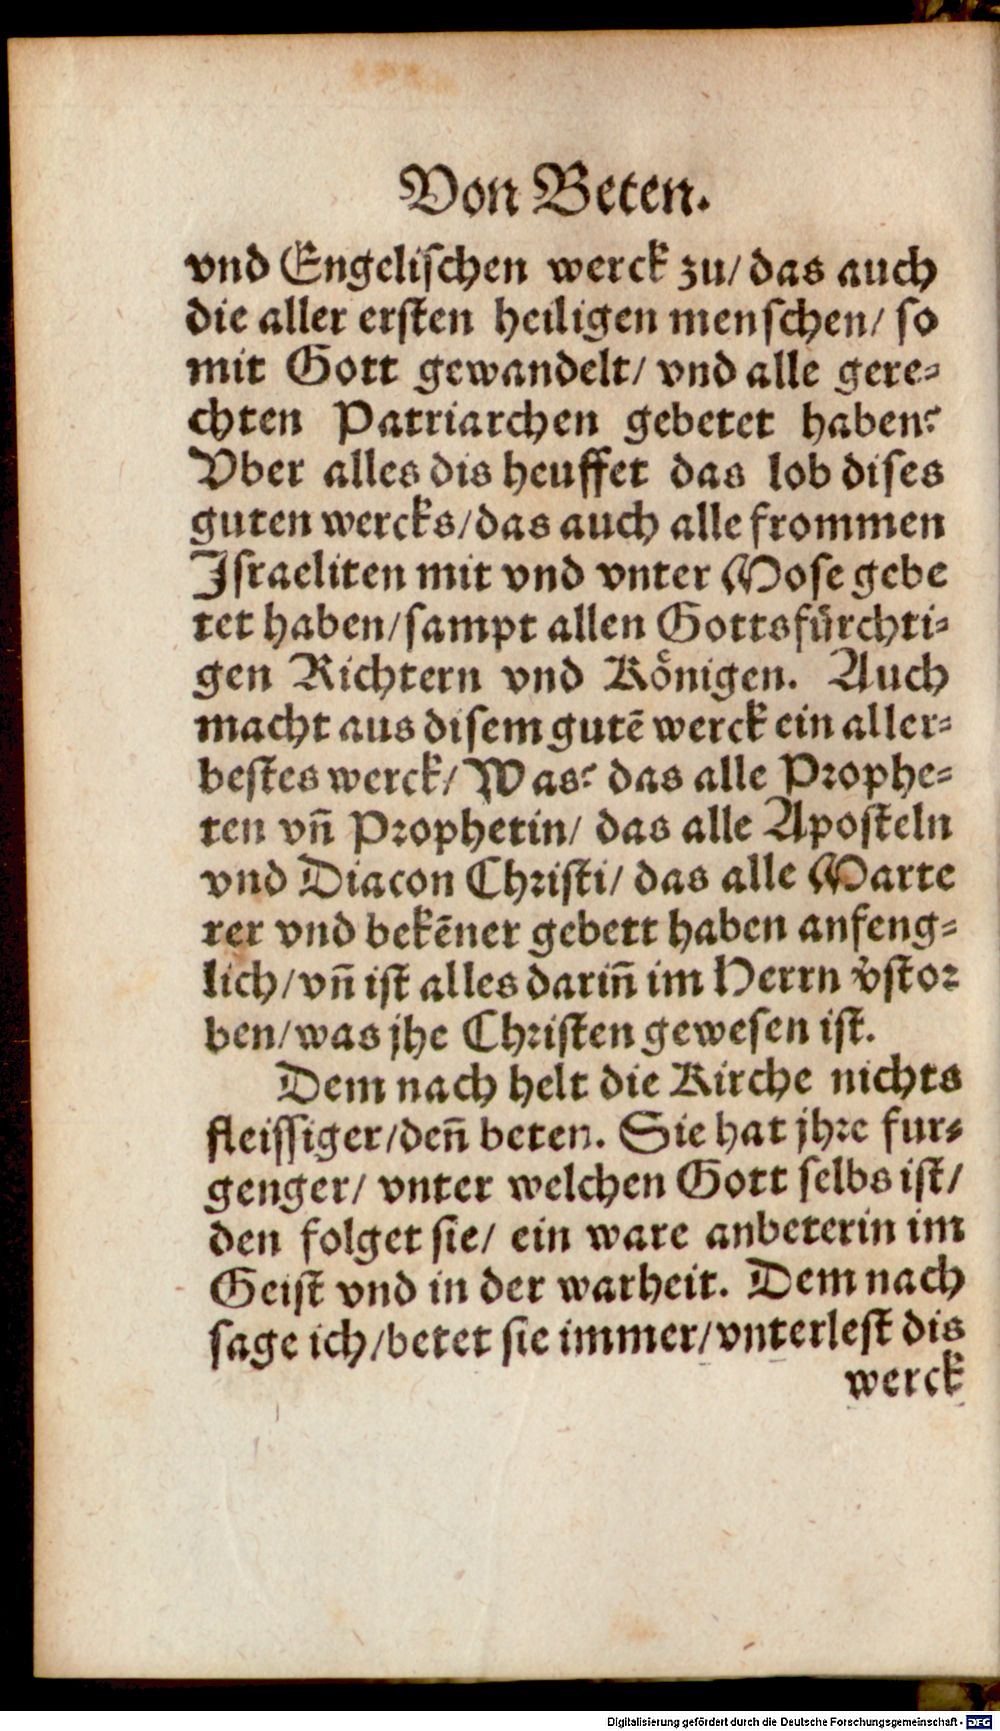 Von Beten.
vnd Engelischen werck zu/ das auch
die aller ersten heiligen menschen/ so
mit Gott gewandelt/ vnd alle gere⸗
chten Patriarchen gebetet haben?
Vber alles dis heuffet das lob dises
guten wercks/das auch alle frommen
Israeliten mit vnd vnter Mose gebe
tet haben/sampt allen Gottsfürchti⸗
gen Richtern vnd Königen. Auch
macht aus disem gutē werck ein aller⸗
bestes werck/ Was? das alle Prophe⸗
ten vñ Prophetin/ das alle Aposteln
vnd Diacon Christi/ das alle Marte
rer vnd bekēner gebett haben anfeng⸗
lich/vñ ist alles dariñ im Herrn v̓stor
ben/was jhe Christen gewesen ist.
Dem nach helt die Kirche nichts
fleissiger/deñ beten. Sie hat jhre fur⸗
genger/ vnter welchen Gott selbs ist/
den folget sie/ ein ware anbeterin im
Geist vnd in der warheit. Dem nach
sage ich/betet sie immer/vnterlest dis
werck
Digitalisierung gefördert durch die Deutsche Forschungsgemeinschaft - DFG